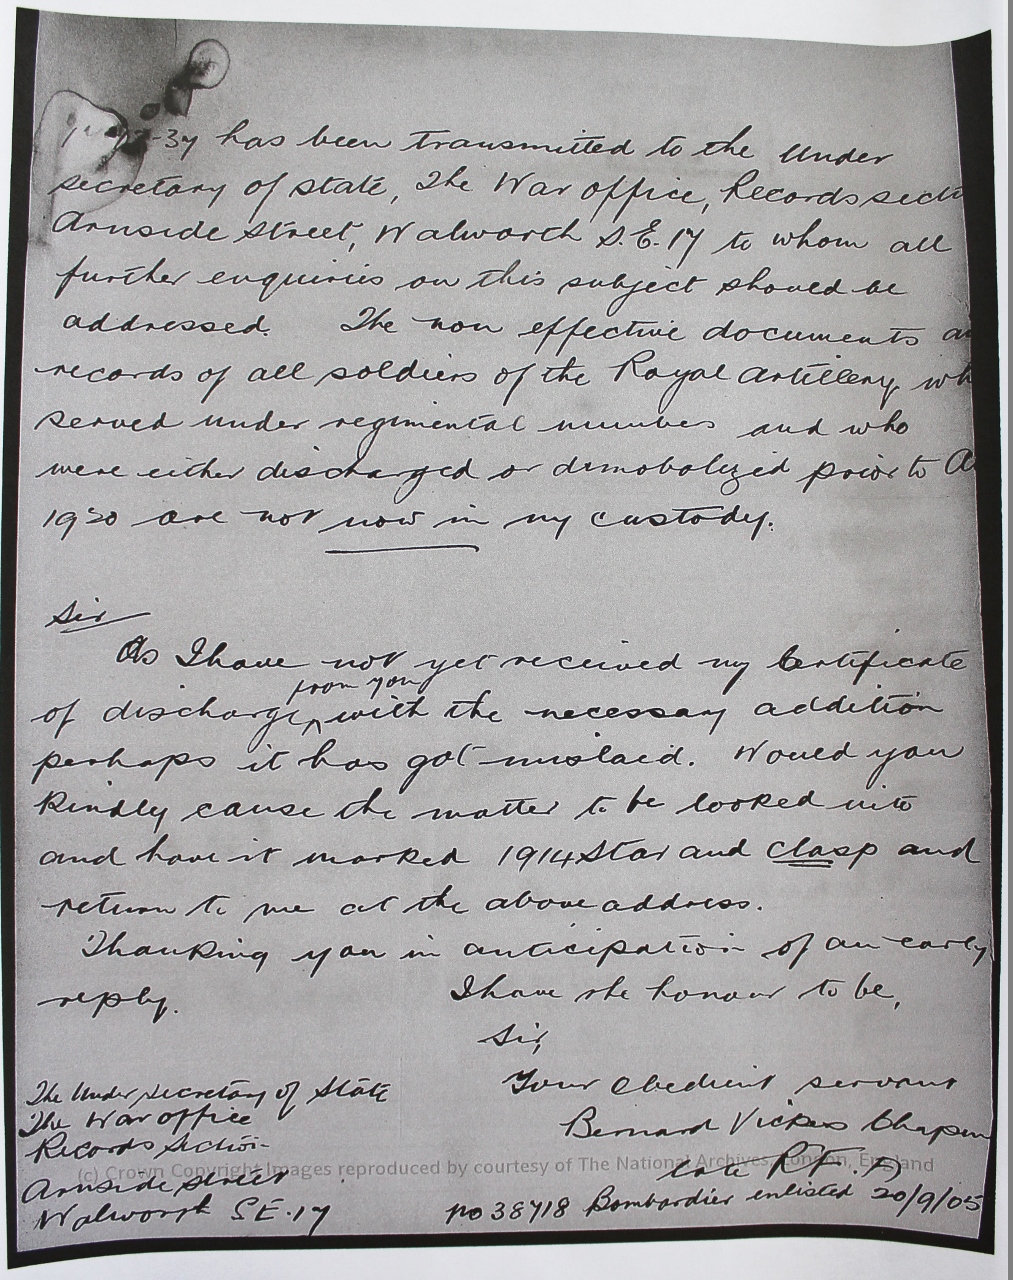 -37 has been transmitted to the Under
secretary of state, The War office, Records secti
Arnside Street, Walworth S.E.17 to whom all
further enquiries on this subject should be
addressed. The non effective documents a
records of all soldiers of the Royal Artillery, wh
served under regimental numbers and who
were either discharged or demobolized prior to A
1920 are not now in my custody.
Sir
As I have not yet received my Certificate
from you
of discharge, with the necessary addition
perhaps it has got mislaid. Would you
kindly cause the matter to be looked into
and have it marked 1914 Star and clasp and
return to me at the above address.
Thanking you in anticipation of an early
reply.
I have the honour to be,
Sir,
Your obedient servant
Bernard Vickers Chapm
late R.F.A
no 38718 Bombardier enlisted 20/9/05
The Under Secretary of State
The War office
Records Section
Arnside street
Walworth S.E.17
(c) Crown Copyright Images reproduced by courtesy of The National Archives, London, England